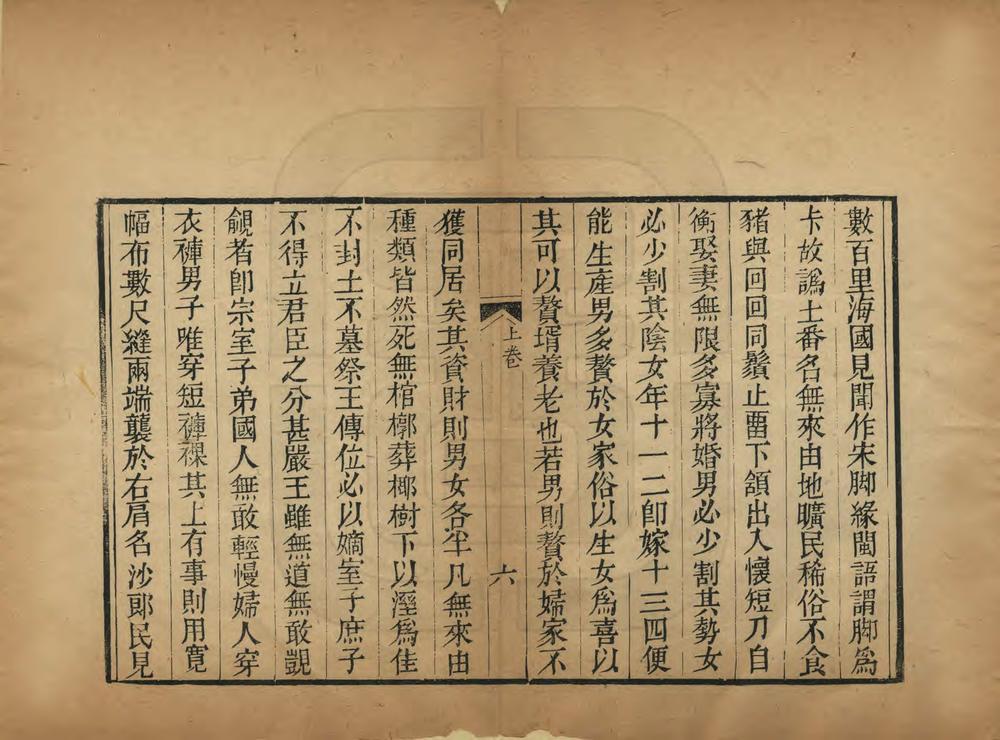 數百里海國見聞作宋脚緣閩語謂脚爲
卡故譌土番名無來由地曠民稀俗不食
豬與回回同鬚止畱下頷出入懷短刀自
衞娶妻無限多寡將婚男必少割其勢女
必少割其陰女年十一二卽嫁十三四便
能生產男多贅於女家俗以生女爲喜以
其可以贅壻養老也若男則贅於婦家不
上卷
六
獲同居矣其資財則男女各半凡無來由
種類皆然死無棺槨葬椰樹下以溼爲佳
不封土不墓祭王傳位必以嫡室子庶子
不得立君臣之分甚嚴王雖無道無敢覬
覦者卽宗室子弟國人無敢輕慢婦人穿
衣褲男子唯穿短褲裸其上有事則用寬
幅布數尺縫兩端襲於右肩名沙郞民見